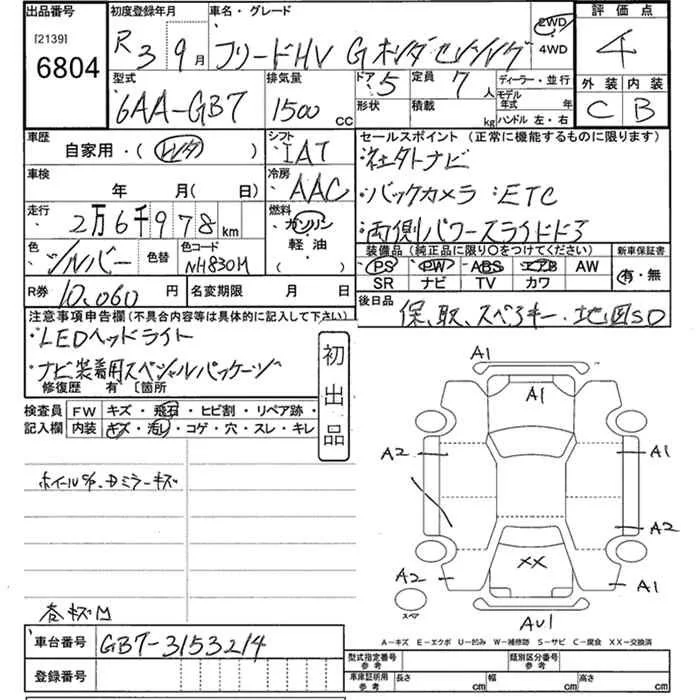 出品番号
[2139]
6804
初度登録年月
R 3 9月
車名・グレード
フリードHV G ホンダセンシング
2WD
4WD
評価点
4
外装 内装
C B
型式
6AA-GB7
排気量
1500 CC
ドア 5
形状
定員 7人
積載 kg
ディーラー・並行
モデル年式 年
ハンドル 左・右
車歴
自家用・(レンタ)
シフト
IAT
セールスポイント (正常に機能するものに限ります)
・社外ナビ
・バックカメラ ・ETC
・両側パワースライドドア
車検
年 月(日)
冷房
AAC
走行
2万6千978km
燃料
ガソリン
軽油
( )
色
シルバー
色替
色コード
NH830M
装備品 (純正品に限り○をつけてください)
PS PW ABS エアB AW
SR ナビ TV カワ
新車保証書
有・無
R券 10,060円
名変期限 月 日
後日品
保、取、スペアキー・地図SD
注意事項申告欄(不具合内容等は具体的に記入して下さい)
・LEDヘッドライト
・ナビ装着用スペシャルパッケージ
修復歴 有 〔箇所
初出品
検査員記入欄
FW キズ・飛石・ヒビ割・リペア跡・
内装 キズ・汚レ・コゲ・穴・スレ・キレ
ホイールC/P、Dミラーキズ
A1
A1
A2 A1
A2
XX
A2 A1
スペア
AU1
A-キズ E-エクボ U-凹み W-補修跡 S-サビ C-腐食 XX-交換済
車台番号
GB7-3153214
登録番号
型式指定番号 参考
類別区分番号 参考
車庫証明用 参考
長さ cm
幅 cm
高さ cm